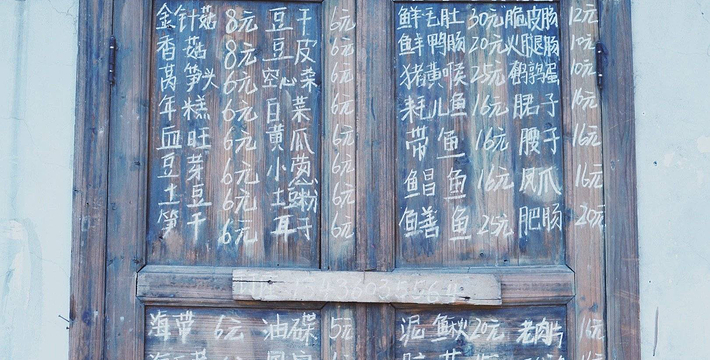 金针菇 8元 豆干 6元 鲜毛肚 30元 脆皮肠 12元
香菇 8元 豆皮 6元 鲜鸭肠 20元 火腿肠 10元
莴笋头 6元 空心菜 6元 猪黄喉 25元 鹌鹑蛋 10元
年糕 6元 白菜 6元 耗儿鱼 16元 16元
血旺 6元 黄瓜 6元 带鱼 16元 腰子 16元
豆芽 6元 小葱 6元 鲳鱼 16元 凤爪 16元
土豆 6元 土豆粉 6元 鳝鱼 25元 肥肠 20元
笋干 6元 耳子 6元
海带 6元 油碟 5元 泥鳅 20元 老肉片 16元